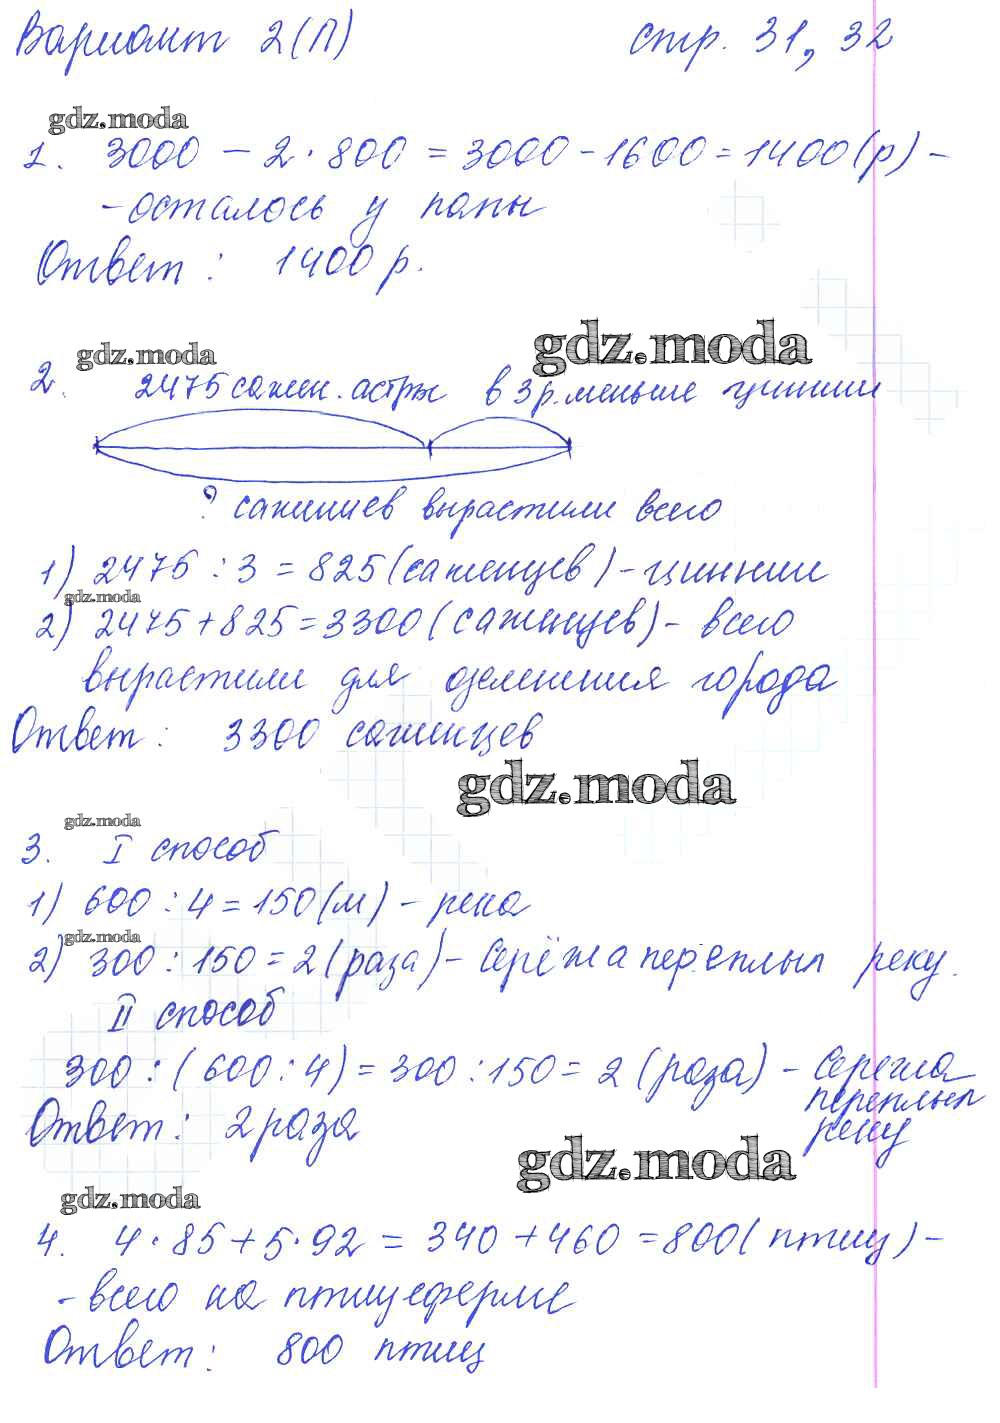 Вариант 2(П) стр. 31, 32
gdz.moda
1. 3000 – 2 · 800 = 3000 – 1600 = 1400 (р) –
– осталось у папы
Ответ : 1400 р.
gdz.moda
gdz.moda
2. 2475 сажен. астры в 3 р. меньше циннии
? саженцев вырастили всего
1) 2475 : 3 = 825 (саженцев) – циннии
gdz.moda
2) 2475 + 825 = 3300 (саженцев) – всего
вырастили для озеленения города
Ответ : 3300 саженцев
gdz.moda
gdz.moda
3. I способ
1) 600 : 4 = 150 (м) – река
gdz.moda
2) 300 : 150 = 2 (раза) – Серёжа переплыл реку.
II способ
300 : (600 : 4) = 300 : 150 = 2 (раза) – Сережа
переплыл
реку
Ответ : 2 раза
gdz.moda
gdz.moda
4. 4 · 85 + 5 · 92 = 340 + 460 = 800 (птиц) –
– всего на птицеферме
Ответ : 800 птиц